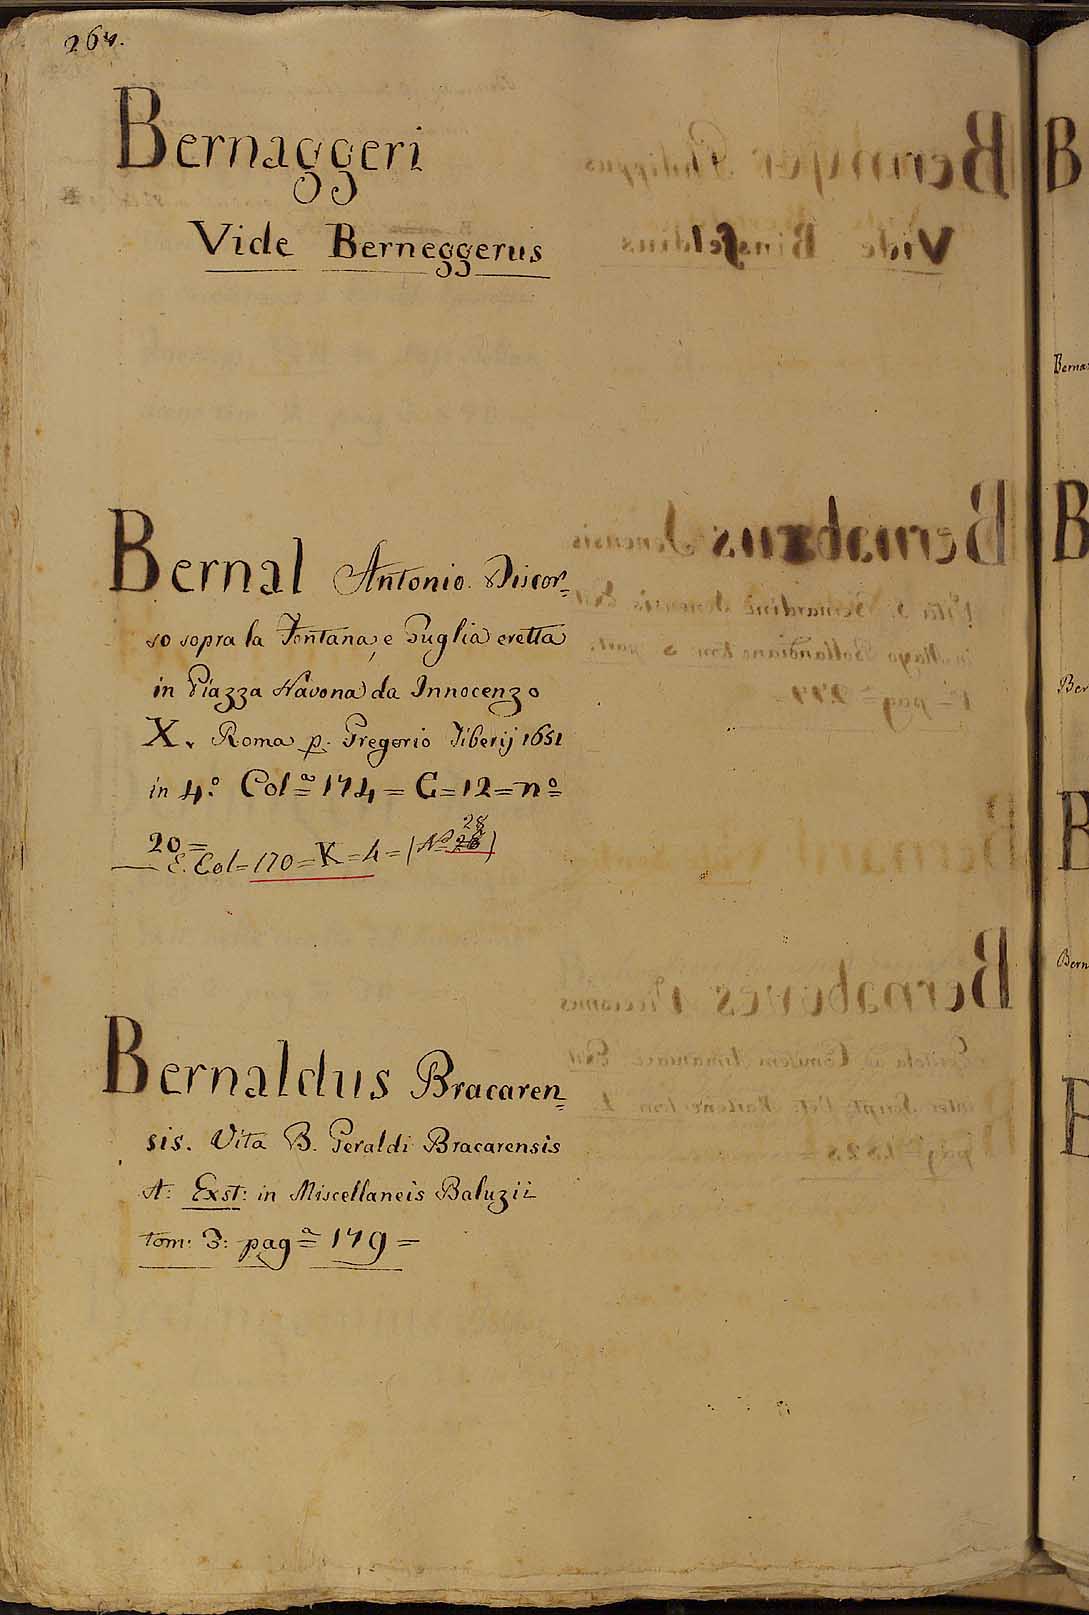 264.
Bernaggeri
Vide Berneggerus
Bernal Antonio. Discor=
so sopra la Fontana, e Guglia eretta
in Piazza Navona da Innocenzo
X. Roma p. Gregorio Tiberij 1651
in 4º. Colª = 174 = G = 12 = nº =
20 =
E. Col = 170 = K = 4 = (Nº 28)
Bernaldus Bracaren=
sis. Vita B. Geraldi Bracarensis
A: Exst: in Miscellaneis Baluzii
tom: 3: pagª = 179 =